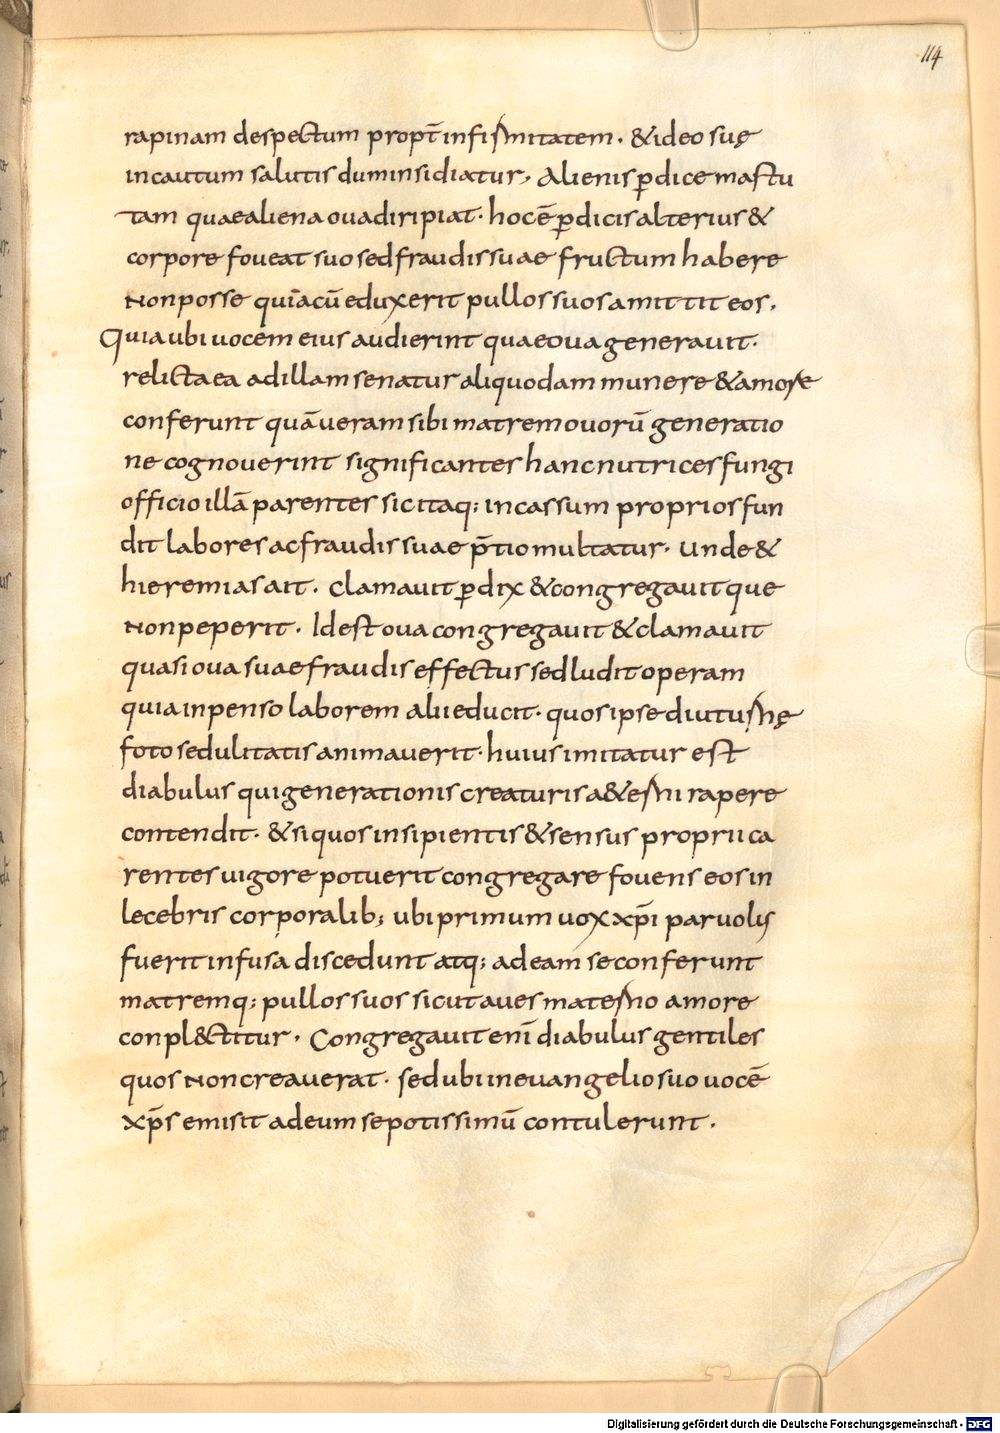 114
rapinam despectum propt̄ infirmitatem. & ideo suę
incautum salutis dum insidiatur, Alienis ꝑdicem astu
tam quae aliena ova diripiat. hoc ē ꝑdicis alterius &
corpore foveat suo sed fraudis suae fructum habere
non posse quia cū eduxerit pullos suos amittit eos.
Quia ubi uocem eius audierint quae ova generauit.
relicta ea ad illam se natur aliquodam munere & amore
conferunt quā ueram sibi matrem ovorū generatio
ne cognoverint significantes hanc nutrices fungi
officio illā parentes sic itaq; in cassum proprios fun
dit labores ac fraudis suae p̄tio multatur. Unde &
hieremias ait. Clamauit ꝑdix & congregauit que
non peperit. Id est ova congregauit & clamauit
quasi ova suae fraudis effectus sed ludit operam
quia inpenso laborem alii educit. quos ipse diuturnę
foto sedulitatis animaverit. huius imitatur est
diabulus qui generationis creaturis a&erni rapere
contendit. & si quos insipientis & sensus proprii ca
rentes uigore potuerit congregare fovens eos in
lecebris corporalib; ubi primum uox xp̄i parvolis
fuerit infusa discedunt atq; ad eam se conferunt
matremq; pullos suos sicut aves materno amore
conpl&ctitur. Congregauit enī diabulus gentiles
quos non creaverat. sed ubi in euangelio suo uocē
xp̄s emisit ad eum se potissimū contulerunt.
Digitalisierung gefördert durch die Deutsche Forschungsgemeinschaft - DFG